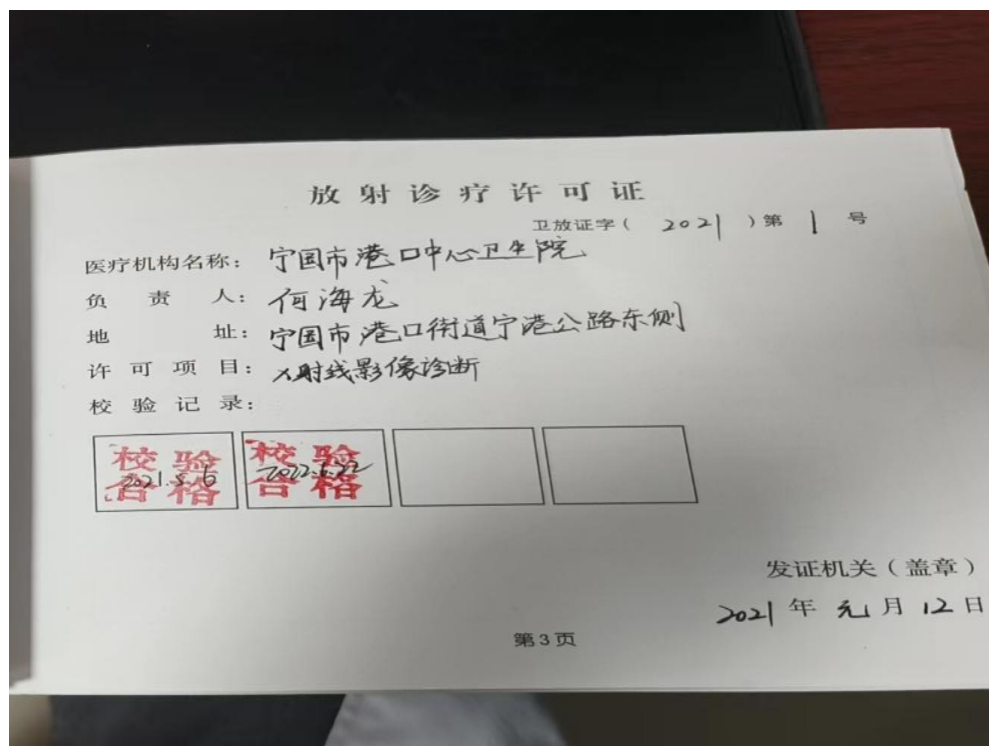 放射诊疗许可证
卫放证字（2021）第1号
医疗机构名称：宁国市港口中心卫生院
负责人：何海龙
地址：宁国市港口街道宁港公路东侧
许可项目：X射线影像诊断
校验记录：
校验合格 2021.5.6
校验合格 2022.6.22
发证机关（盖章）
2021年元月12日
第3页